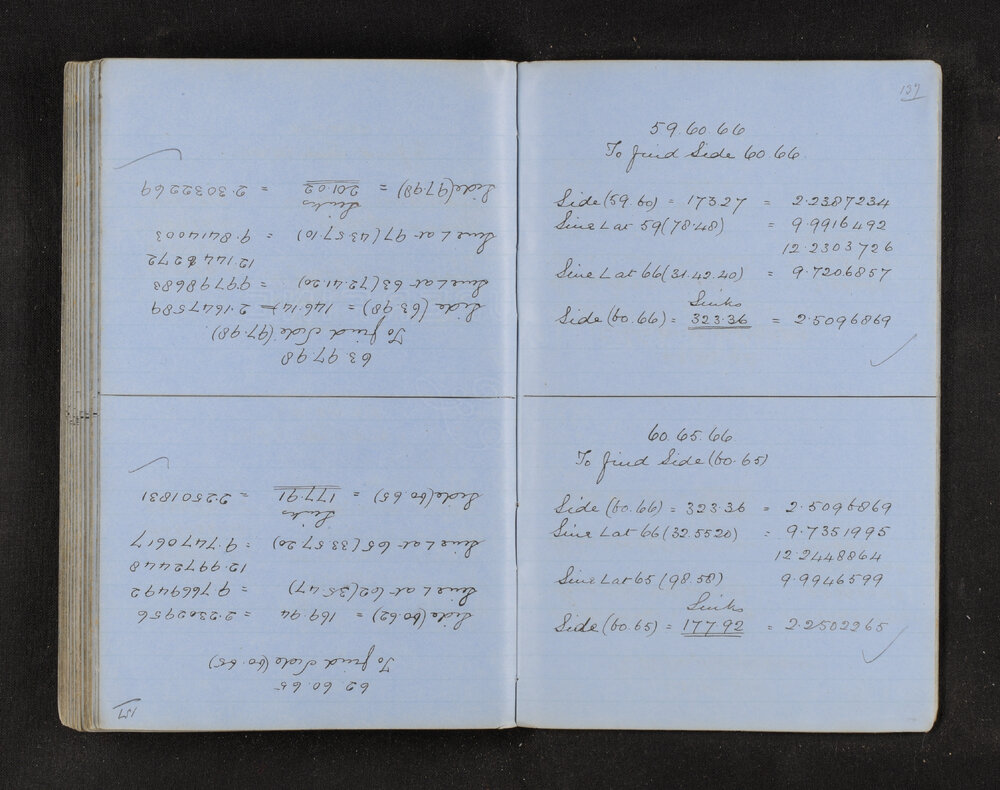 62.60.65
To find Side (60.65)
Side (60.62) = 169.94 = 2.2302956
Sine L at 62 (35.47) 9.7669492
12.9972448
Sine L at 65 (33.57.20) = 9.7470617
Links
Side (60.65) = 177.91 = 2.2501831
63.97.98
To find Side (97.98)
Side (63.98) = 146.14 = 2.1647589
Sine L at 63 (72.41.20) = 9.9798683
12.1446272
Sine L at 97 (43.57.10) = 9.8414003
Links
Side (97.98) = 201.02 = 2.3032269
137
59.60.66
To find Side 60.66
Side (59.60) = 173.27 = 2.2387234
Sine L at 59 (78.48) = 9.9916492
12.2303726
Sine L at 66 (31.42.40) = 9.7206857
Links
Side (60.66) = 323.36 = 2.5096869
60.65.66
To find Side (60.65)
Side (60.66) = 323.36 = 2.5096869
Sine L at 66 (32.55 20) = 9.7351995
12.2448864
Sine L at 65 (98.58) 9.9946599
Links
Side (60.65) = 177.92 = 2.2502265